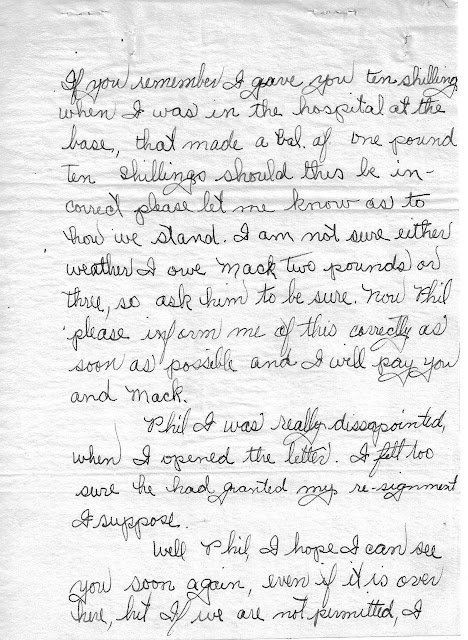 If you remember I gave you ten shilling
when I was in the hospital at the
base, that made a bal. of one pound
ten shillings should this be in-
correct please let me know as to
how we stand. I am not sure either
weather I owe Mack two pounds or
three, so ask him to be sure. Now Phil
please inform me of this correctly as
soon as possible and I will pay you
and Mack.
Phil I was really dissapointed,
when I opened the letter. I felt too
sure he had granted my re-signment
I suppose.
Well Phil, I hope I can see
you soon again, even if it is over
here, but if we are not permitted, I